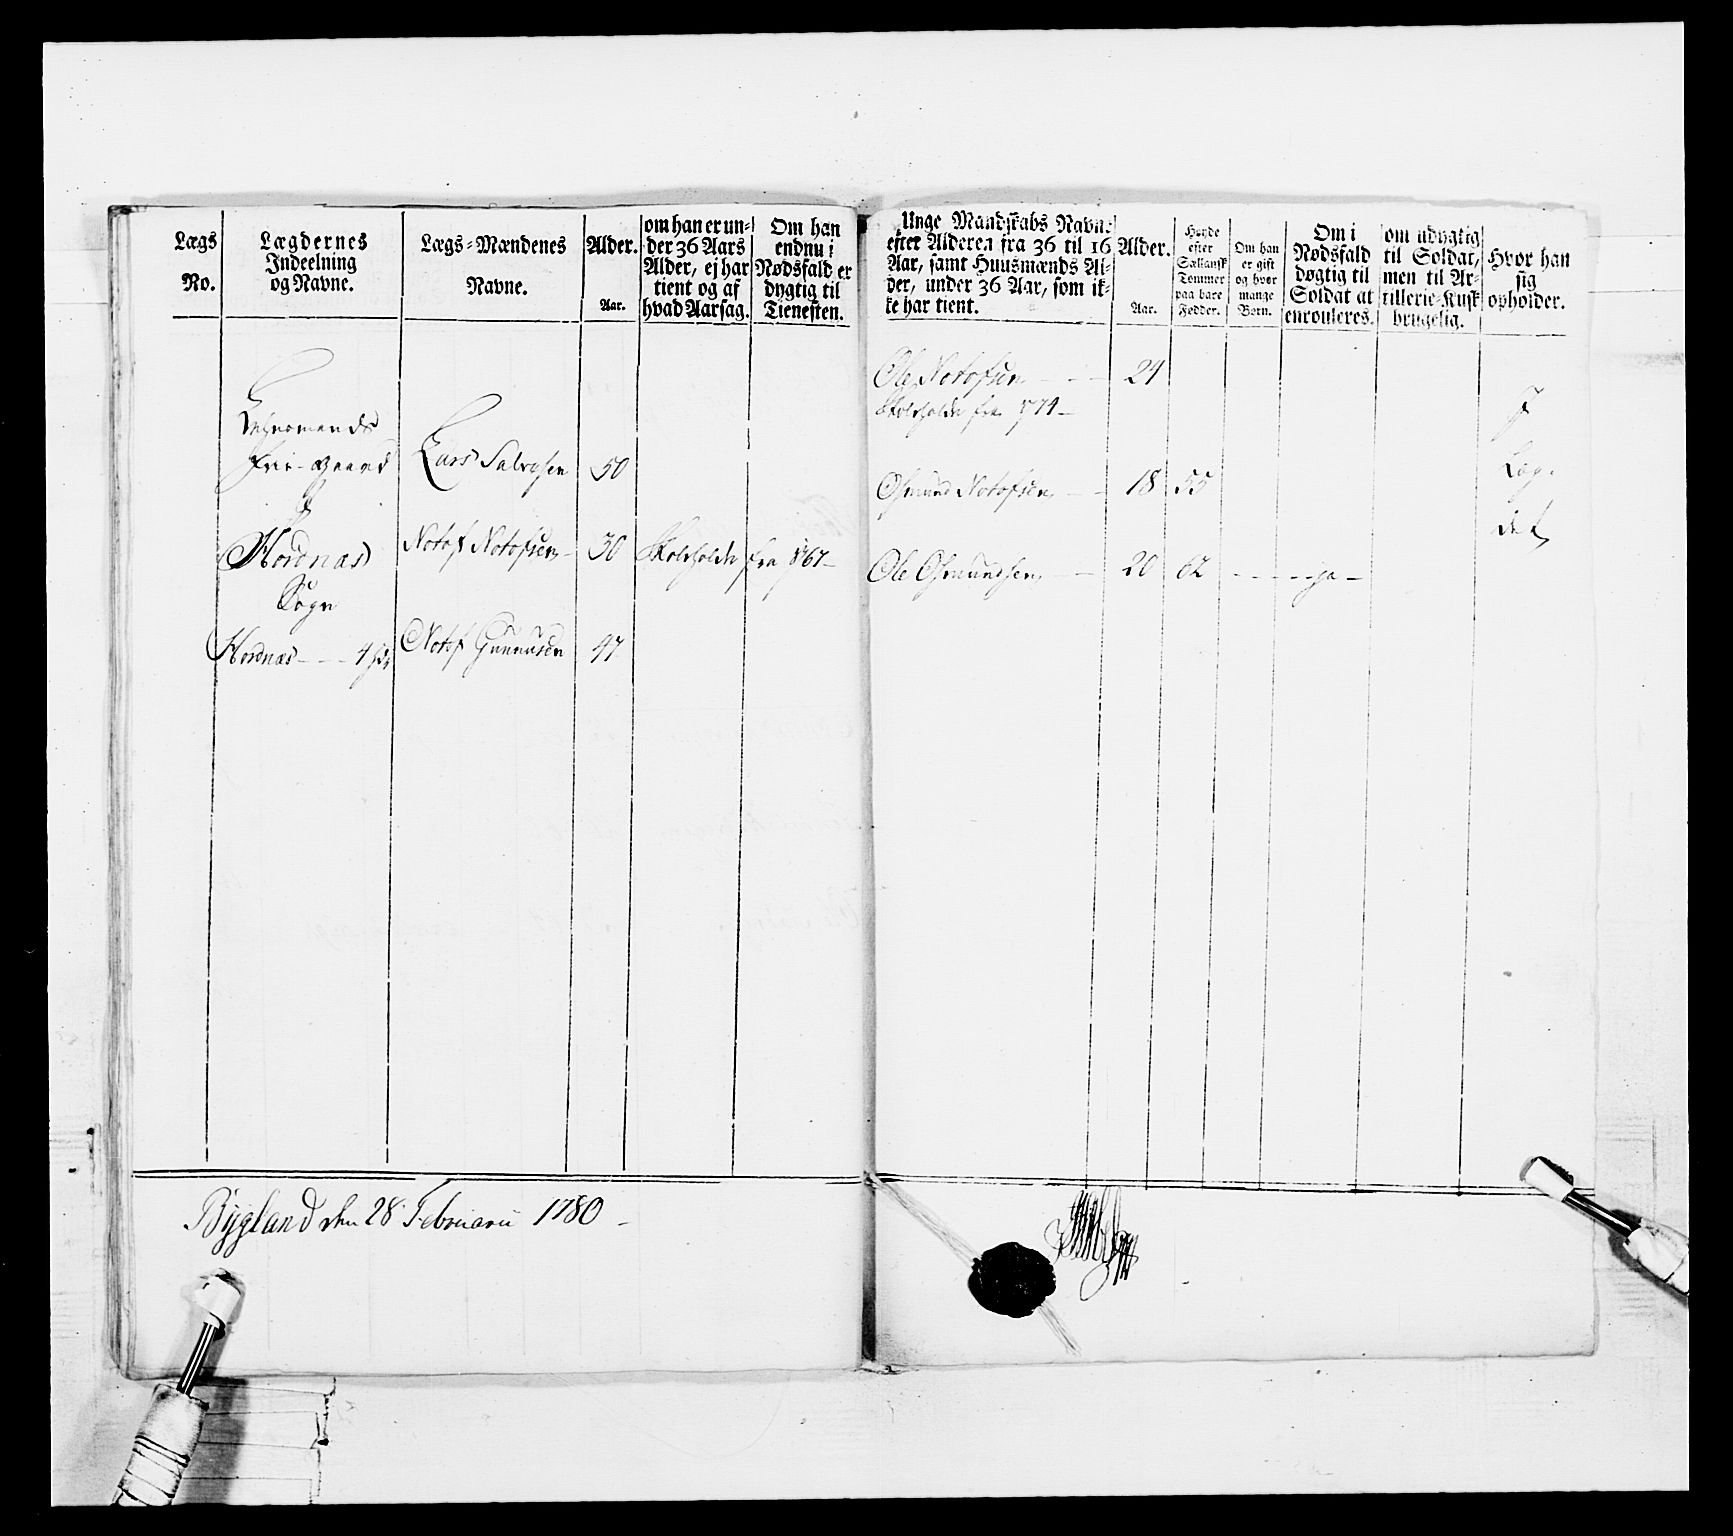 Lægs
No.
Lægdernes
Indeelning
og Navne.
Lægs-Mændenes
Navne.
Alder.
Aar.
om han er un-
der 36 Aars
Alder, ej har
tient og af
hvad Aarsag.
Om han
endnu i
Nødsfald er
dygtig til
Tienesten.
Unge Mandskabs Navne
efter Alderen fra 36 til 16
Aar, samt Huusmænds Al-
der, under 36 Aar, som ik-
ke har tient.
Alder.
Aar.
Høyde
efter
Sællansk
Tommer
paa bare
Fødder.
Om han
er gift
og hvor
mange
Børn.
Om i
Nødsfald
døgtig til
Soldat at
enrouleres.
om udygtig
til Soldat,
men til Ar-
tillerie-Kusk
brugelig.
Hvor han
sig
opholder.
Lehnsmands
Frie-gaard
Lars Salvesen 50
Hordnæs
Sogn
Notof Notofsen 30 Skoleholder fra 1767
Hordnæs - - - 4
Notof Gunnusen 47
Ole Notofsen - - - 24
Skoleholder fra 1774
Osmund Notofsen - - 18 55
Ole Osmundsen - - 20 62 - - - - ja -
I
Læg-
det
Bygland den 28 Februarii 1780 -